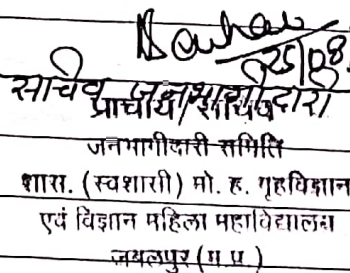 25/08
सचिव जनभागीदारी
प्राचार्य/सचिव
जनभागीदारी समिति
शास. (स्वशासी) मो. ह. गृहविज्ञान
एवं विज्ञान महिला महाविद्यालय
जबलपुर (म.प्र.)